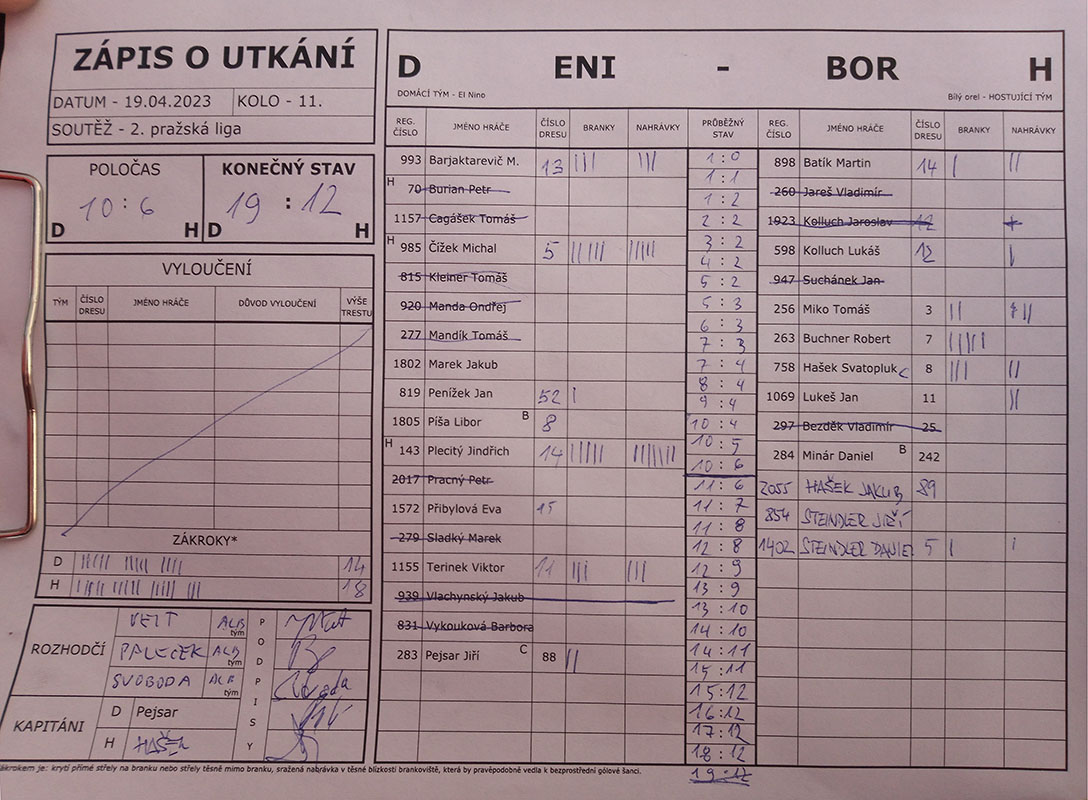 ZÁPIS O UTKÁNÍ
DATUM - 19.04.2023 KOLO - 11.
SOUTĚŽ - 2. pražská liga
POLOČAS KONEČNÝ STAV
10 : 6 19 : 12
D H D H
VYLOUČENÍ
TÝM ČÍSLO DRESU JMÉNO HRÁČE DŮVOD VYLOUČENÍ VÝŠE TRESTU
ZÁKROKY*
D 14
H 18
ROZHODČÍ
VEIT ALB tým
PALEČEK ALB tým
SVOBODA ALB tým
PODPISY
KAPITÁNI
D Pejsar
H HAŠEK
D ENI - BOR H
DOMÁCÍ TÝM - El Nino Bílý orel - HOSTUJÍCÍ TÝM
REG. ČÍSLO JMÉNO HRÁČE ČÍSLO DRESU BRANKY NAHRÁVKY PRŮBĚŽNÝ STAV REG. ČÍSLO JMÉNO HRÁČE ČÍSLO DRESU BRANKY NAHRÁVKY
993 Barjaktarevič M. 13 ||| |||
H 70 Burian Petr
1157 Cagášek Tomáš
H 985 Čížek Michal 5 ||||| |||||
815 Kleiner Tomáš
920 Manda Ondřej
277 Mandík Tomáš
1802 Marek Jakub
819 Penížek Jan 52 |
1805 Píša Libor B 8
H 143 Plecitý Jindřich 14
2017 Pracný Petr
1572 Přibylová Eva 15
279 Sladký Marek
1155 Terinek Viktor 11 ||| |||
939 Vlachynský Jakub
831 Vykouková Barbora
283 Pejsar Jiří C 88 ||
1 : 0
1 : 1
1 : 2
2 : 2
3 : 2
4 : 2
5 : 2
5 : 3
6 : 3
7 : 3
7 : 4
8 : 4
9 : 4
10 : 4
10 : 5
10 : 6
11 : 6
11 : 7
11 : 8
12 : 8
12 : 9
13 : 9
13 : 10
14 : 10
14 : 11
15 : 11
15 : 12
16 : 12
17 : 12
18 : 12
19 : 12
898 Batík Martin 14 | ||
260 Jareš Vladimír
1923 Kolluch Jaroslav 12
598 Kolluch Lukáš 12 |
947 Suchánek Jan
256 Miko Tomáš 3 ||
263 Buchner Robert 7 |||||
758 Hašek Svatopluk C 8 ||| ||
1069 Lukeš Jan 11 ||
297 Bezděk Vladimír 25
284 Minár Daniel B 242
2055 HAŠEK JAKUB 89
854 STEINDLER JIŘÍ
1402 STEINDLER DANIEL 5 | |
zákrokem je: krytí přímé střely na branku nebo střely těsně mimo branku, sražená nahrávka v těsné blízkosti brankoviště, která by pravěpodobně vedla k bezprostřední gólové šanci.